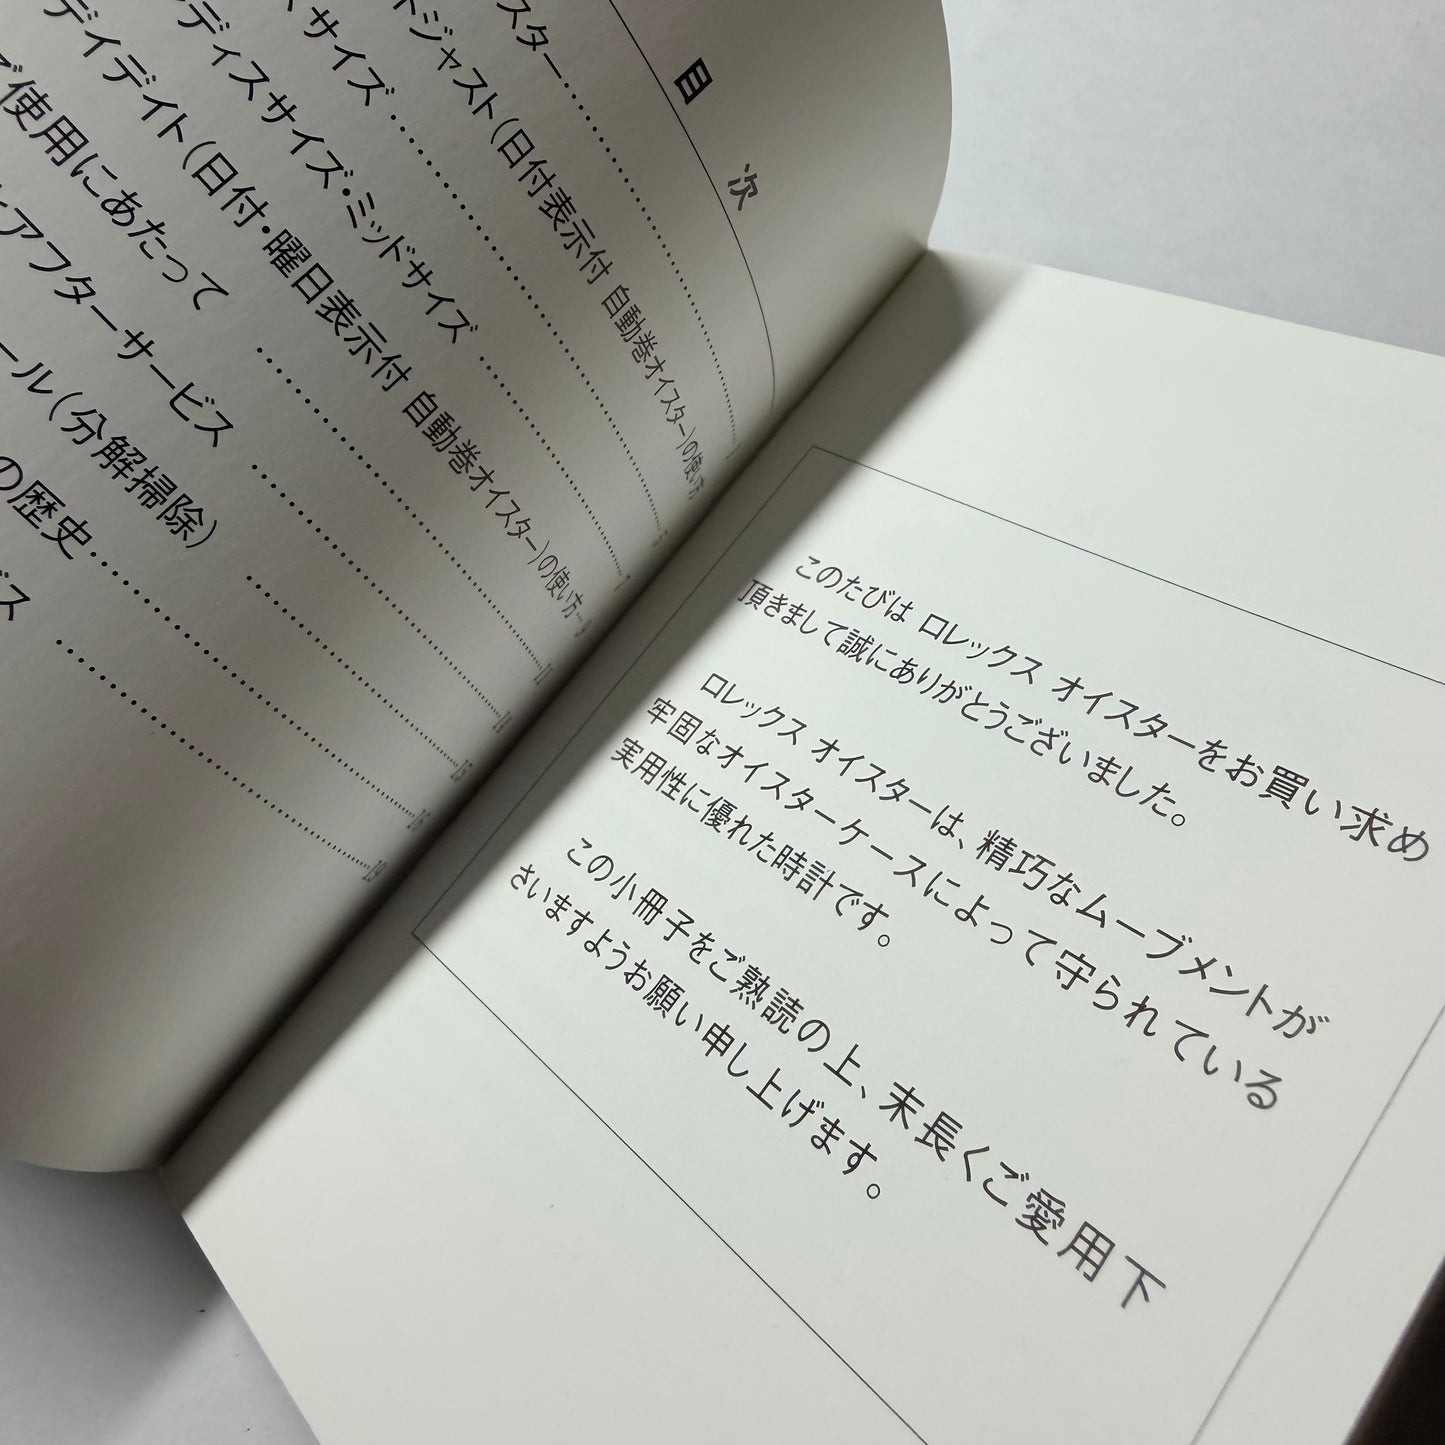 目 次
スター 1
トジャスト(日付表示付 自動巻オイスター)の使い方
サイズ 5
ディスサイズ・ミッドサイズ 7
デイデイト(日付・曜日表示付 自動巻オイスター)の使い方 9
ご使用にあたって 11
アフターサービス 14
ール(分解掃除) 15
の歴史 16
ビス 19
このたびは ロレックス オイスターをお買い求め
頂きまして誠にありがとうございました。
ロレックス オイスターは、精巧なムーブメントが
牢固なオイスターケースによって守られている
実用性に優れた時計です。
この小冊子をご熟読の上、末長くご愛用下
さいますようお願い申し上げます。